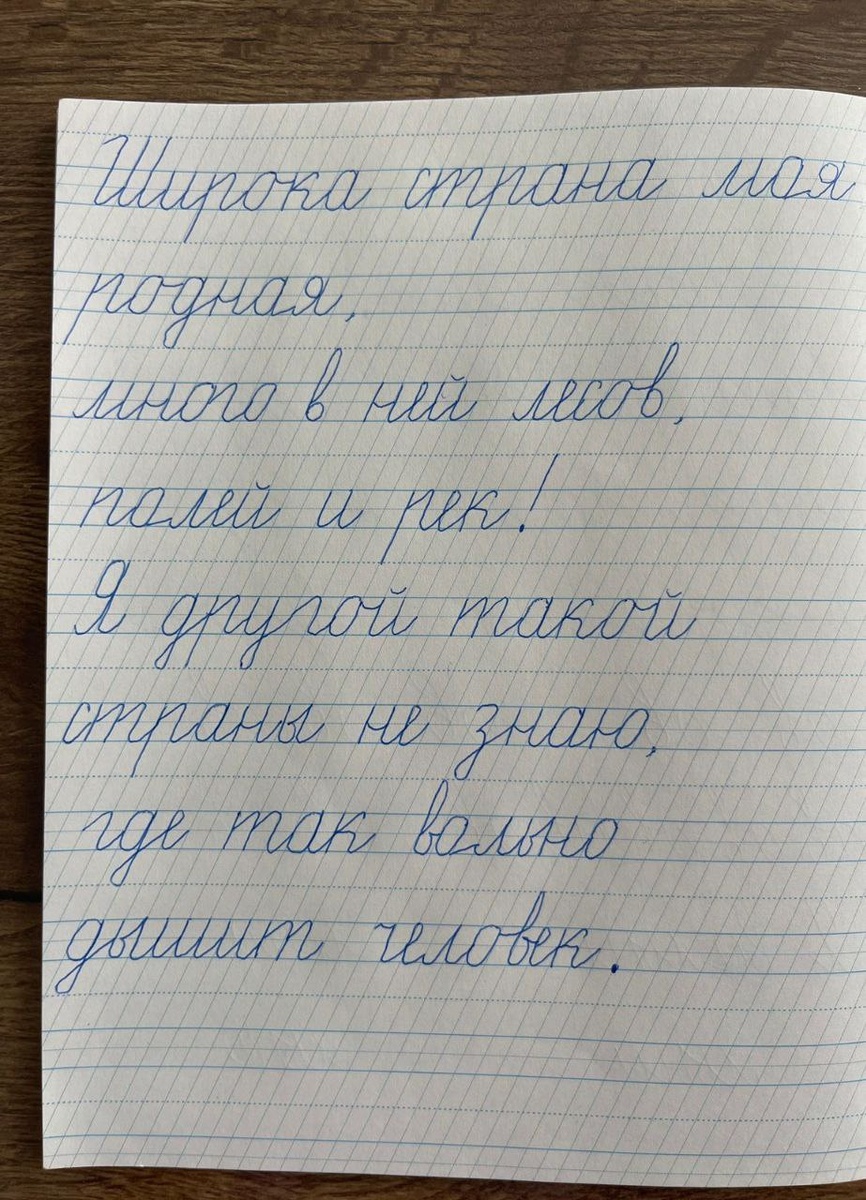 Широка страна моя
родная,
много в ней лесов,
полей и рек!
Я другой такой
страны не знаю,
где так вольно
дышит человек.